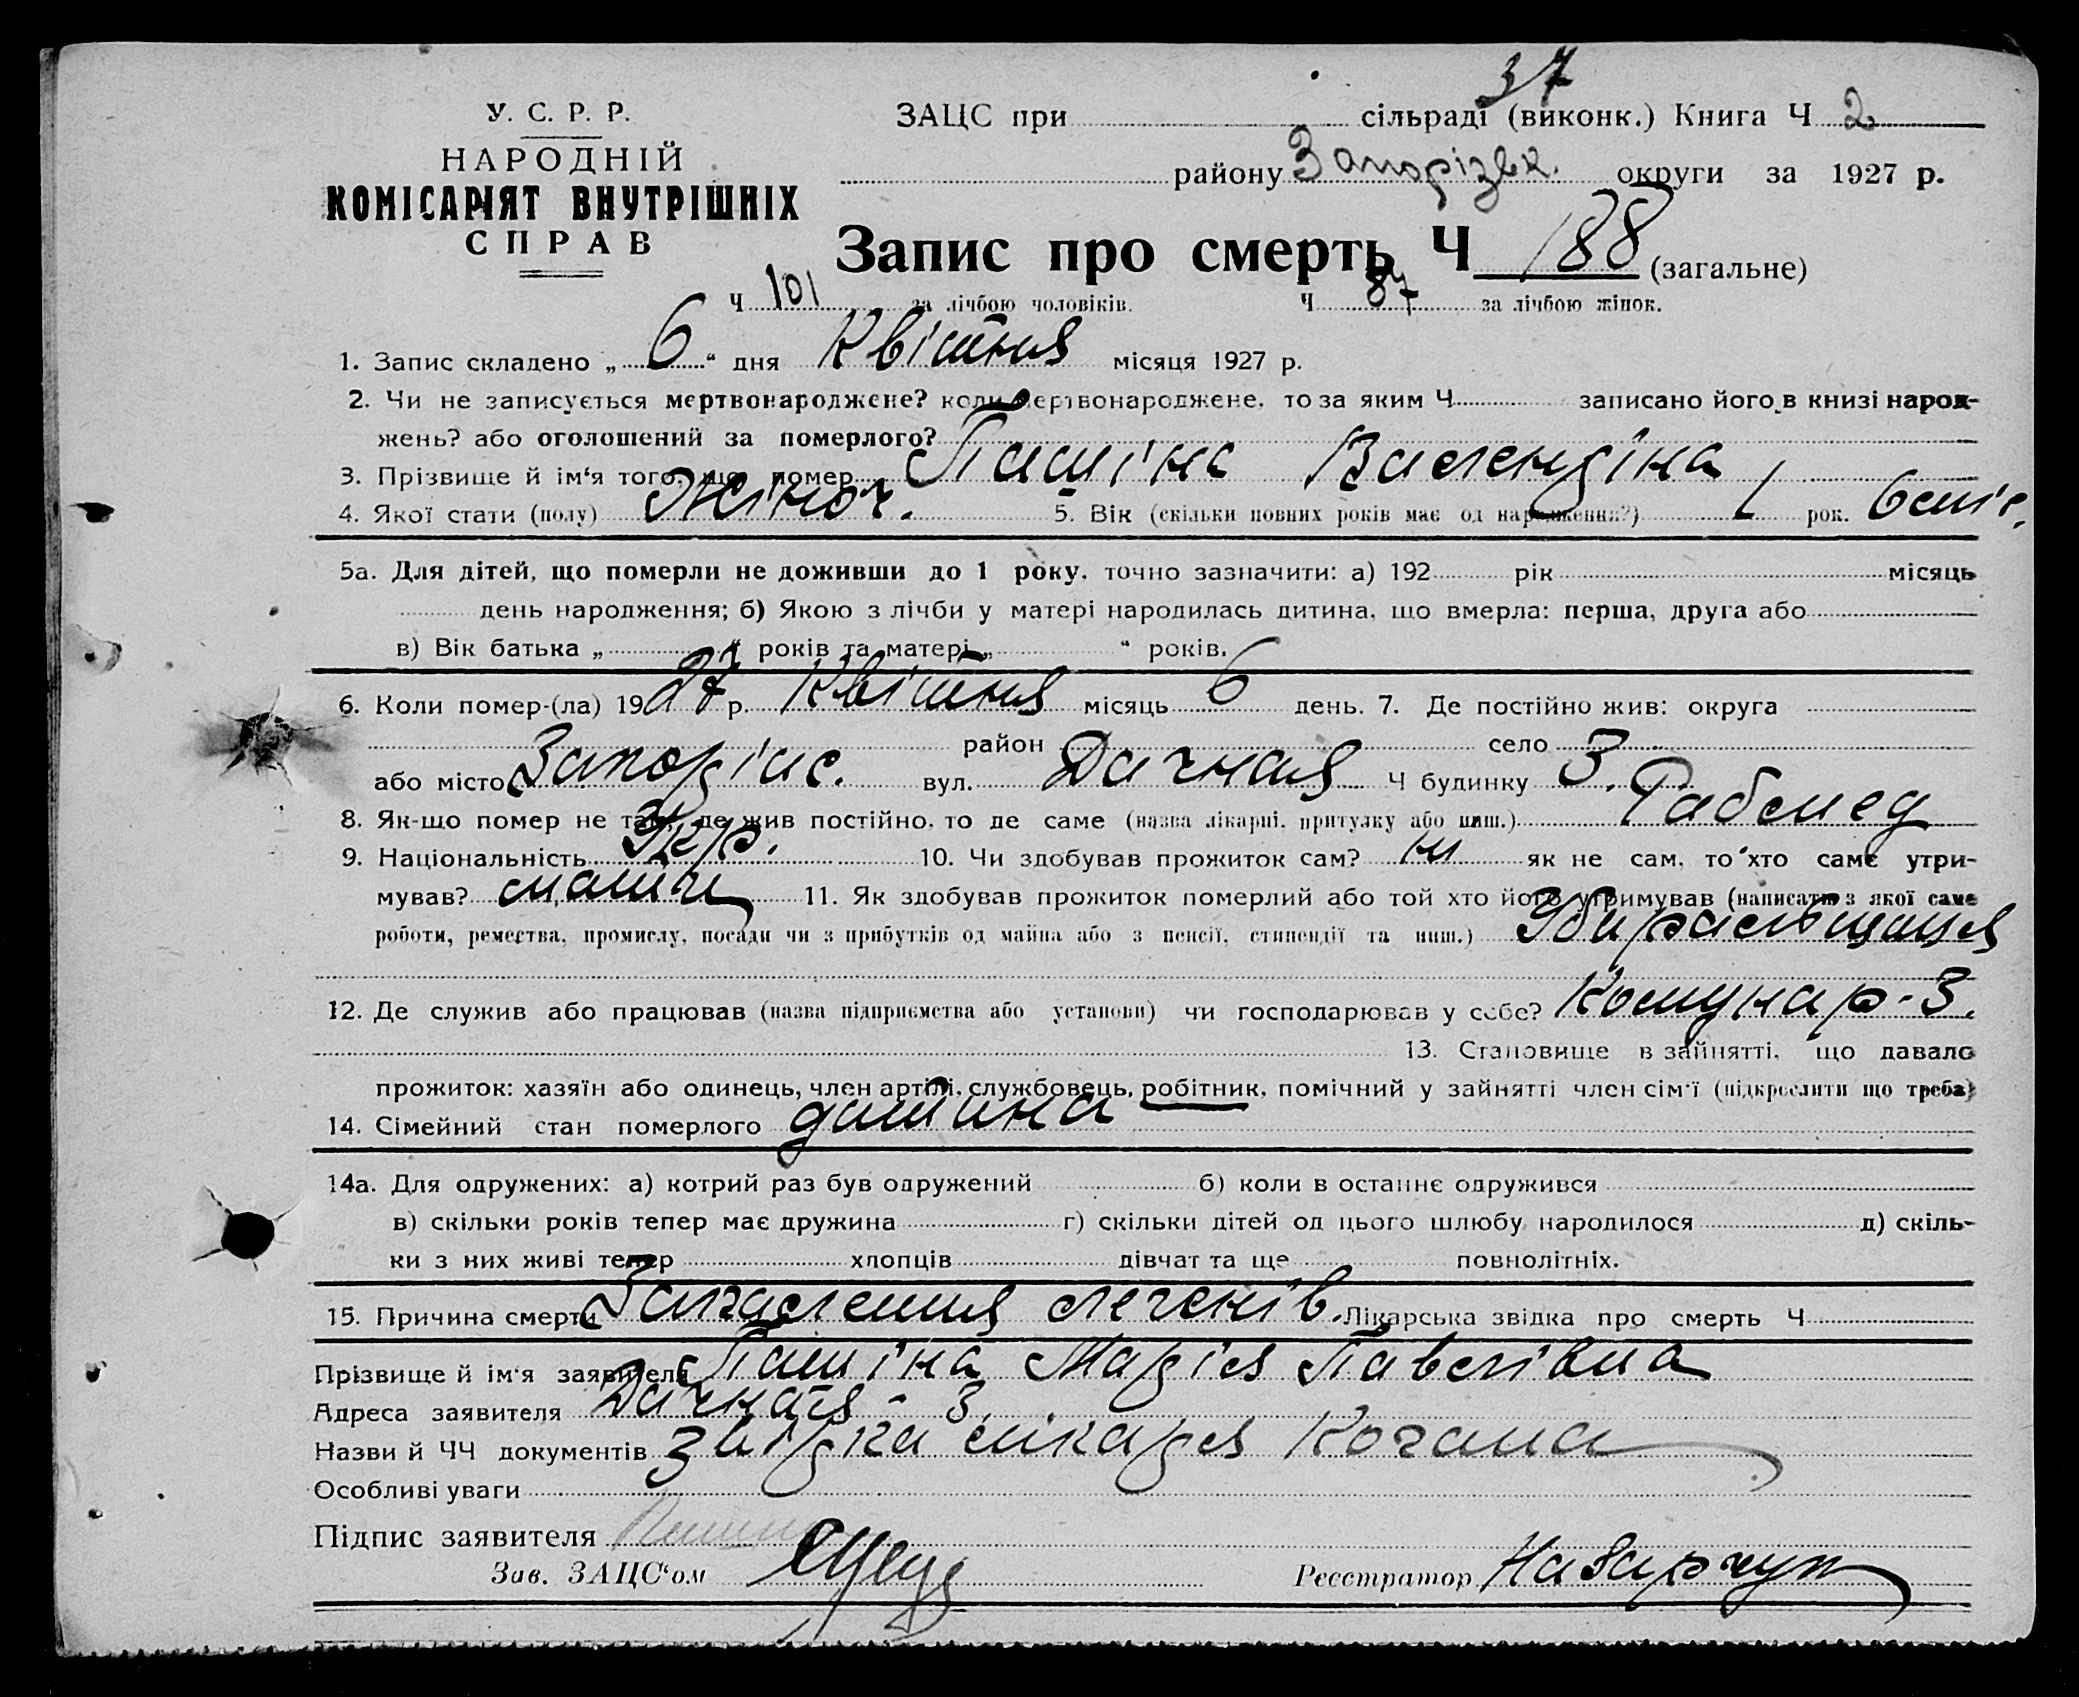 37
У. С. Р. Р.
НАРОДНІЙ
КОМІСАРІЯТ ВНУТРІШНІХ
СПРАВ
ЗАЦС при сільраді (виконк.) Книга Ч 2
району Запорізьк. округи за 1927 р.
Запис про смерть Ч 188 (загальне)
Ч 101 за лічбою чоловіків. Ч 87 за лічбою жінок.
1. Запис складено „ 6 “ дня Квітня місяця 1927 р.
2. Чи не записується мертвонароджене? коли мертвонароджене, то за яким Ч записано його в книзі народ-
жень? або оголошений за померлого?
3. Прізвище й ім‘я того, що помер Пашіна Валендіна
4. Якої стати (полу) Жіноч. 5. Вік (скільки повних років має од народження?) 1 рок. 6 міс.
5а. Для дітей, що померли не доживши до 1 року, точно зазначити: а) 192 рік місяць
день народження; б) Якою з лічби у матері народилась дитина, що вмерла: перша, друга або
в) Вік батька „ “ років та матері „ “ років.
6. Коли помер-(ла) 1927 р. Квітня місяць 6 день. 7. Де постійно жив: округа
район село
або місто Запоріж. вул. Дачная Ч будинку 3.
8. Як-що помер не там, де жив постійно, то де саме (назва лікарні, притулку або инш.) Рабмед
9. Національність Укр. 10. Чи здобував прожиток сам? ні як не сам, то хто саме утри-
мував? мати 11. Як здобував прожиток померлий або той хто його утримував (написати з якої саме
роботи, ремества, промислу, посади чи з прибутків од майна або з пенсії, стипендії та инш.)
12. Де служив або працював (назва підприємства або установи) чи господарював у себе? Комунар-З.
13. Становище в зайнятті, що давало
прожиток: хазяїн або одинець, член артілі, службовець, робітник, помічний у зайнятті член сім‘ї (підкреслити що треба)
14. Сімейний стан померлого дитина
14а. Для одружених: а) котрий раз був одружений б) коли в останнє одружився
в) скільки років тепер має дружина г) скільки дітей од цього шлюбу народилося д) скіль-
ки з них живі тепер хлопців дівчат та ще повнолітніх.
15. Причина смерти Запалення легенів. Лікарська звідка про смерть Ч
Прізвище й ім‘я заявителя Пашіна Марія Павлівна
Адреса заявителя Дачная - 3.
Назви й ЧЧ документів лікаря Когана
Особливі уваги
Підпис заявителя
Зав. ЗАЦС‘ом Реєстратор Назарчук